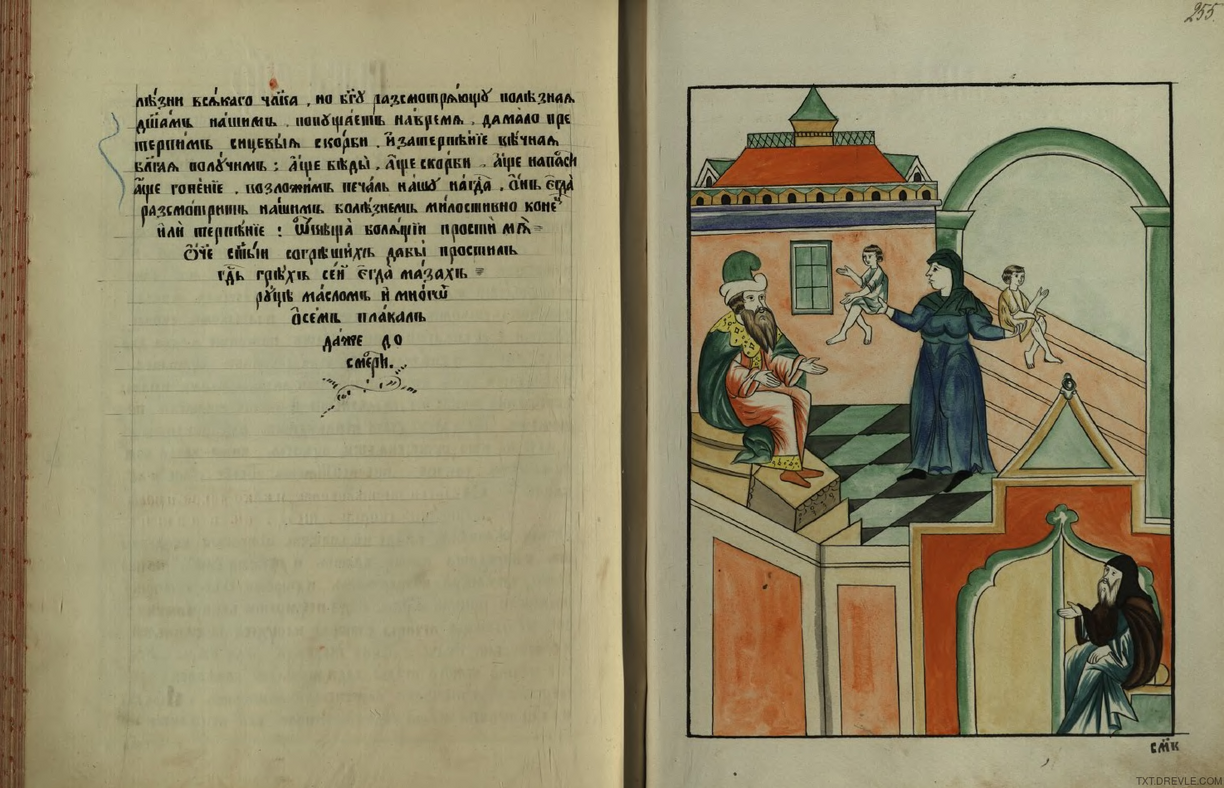 лѣзни всѧ́каго чл҃ка , но бг҃ꙋ разсмотрѧ́ющꙋ полѣ́знаѧ
дш҃а́мъ на́шимъ . попꙋща́етъ на́времѧ . да́мало пре
те́рпимъ сицевы́ѧ ско́рби . и҆затерпѣ́нїе вѣ́чнаѧ
бл҃га́ѧ полꙋ́чимъ ; а҆́ще бѣ́ды , а҆́ще ско́рби . а҆́ще
а҆́ще гоне́нїе . возло́жимъ печа́ль на́шꙋ на́гд҃а . ѻ҆́нъ є҆гда̀
разсмо́тритъ на́шимъ болѣ́знемъ ми́лостивно коне́ц
и҆лѝ терпѣ́нїе : ѿвѣща̀ болѧ́щїи прости́ мѧ̀
ѻ҆́ч҃е ст҃ы́и согрѣши́хъ дабы̀ прости́лъ
гд҃ь грѣ́хъ се́й є҆гда̀ ма́захъ
рꙋ́цѣ ма́сломъ и҆ мно́гѡ
ѻ҆се́мъ пла́калъ
да́же до
сме́рти.
255.
см҃к
TXT.DREVLE.COM